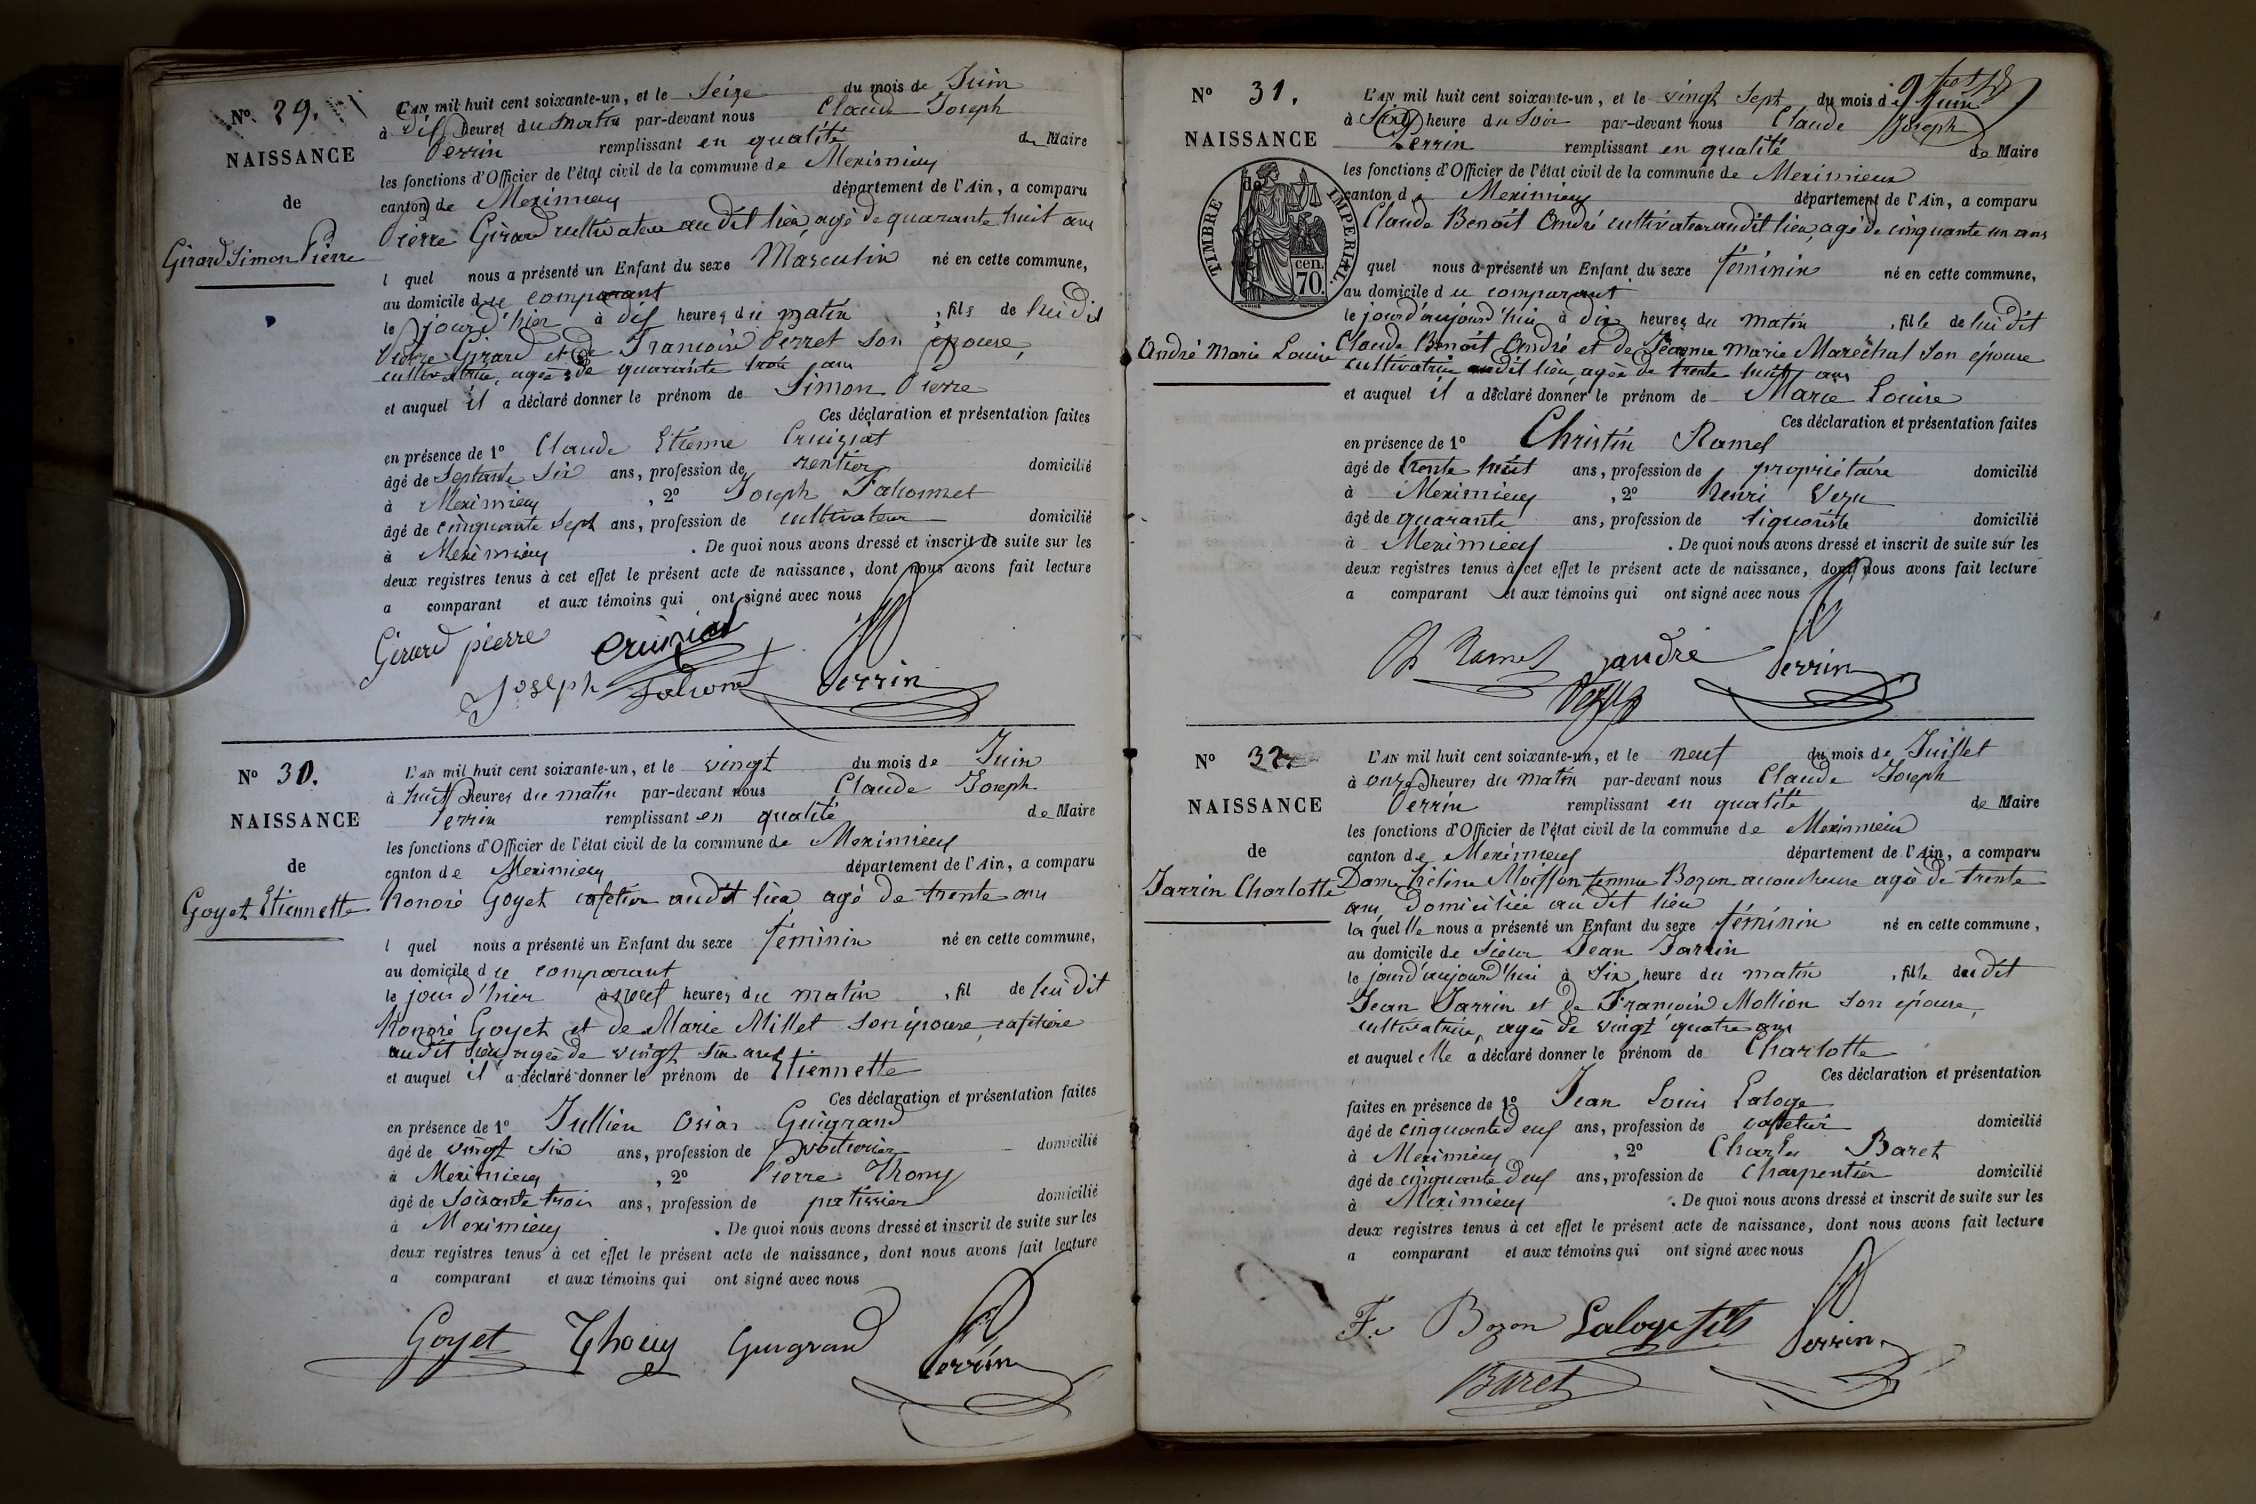 Nº 29.
NAISSANCE
de
Girard Simon Pierre
L'AN mil huit cent soixante-un, et le Seize du mois de Juin
à dix heures du Matin par-devant nous Claude Joseph
Perrin remplissant en qualité de Maire
les fonctions d'Officier de l'état civil de la commune de Meximieux
canton de Meximieux département de l'Ain, a comparu
Pierre Girard cultivateur au dit lieu, agé de quarante huit ans
l quel nous a présenté un Enfant du sexe Masculin né en cette commune,
au domicile du comparant
le jour d'hier à dix heures du matin , fils de lui dit
Pierre Girard et de Françoise Perret son épouse,
cultivatrice, agée de quarante trois ans
et auquel il a déclaré donner le prénom de Simon Pierre
Ces déclaration et présentation faites
en présence de 1º Claude Etienne Cruiziat
âgé de Septante Six ans, profession de rentier domicilié
à Meximieux , 2º Joseph
âgé de cinquante sept ans, profession de cultivateur domicilié
à Meximieux . De quoi nous avons dressé et inscrit de suite sur les
deux registres tenus à cet effet le présent acte de naissance, dont nous avons fait lecture
a comparant et aux témoins qui ont signé avec nous
Girard pierre Cruiziat
Joseph Perrin
Nº 30.
NAISSANCE
de
Goyet Etiennette
L'AN mil huit cent soixante-un, et le vingt du mois de Juin
à huit heures du matin par-devant nous Claude Joseph
Perrin remplissant en qualité de Maire
les fonctions d'Officier de l'état civil de la commune de Meximieux
canton de Meximieux département de l'Ain, a comparu
Honoré Goyet cafetier audit lieu, agé de trente ans
l quel nous a présenté un Enfant du sexe féminin né en cette commune,
au domicile du comparant
le jour d'hier à neuf heures du matin , fil de lui dit
Honoré Goyet et de Marie Millet son épouse, cafetière
audit lieu agée de vingt six ans
et auquel il a déclaré donner le prénom de Etiennette
Ces déclaration et présentation faites
en présence de 1º Jullien Guigrand
âgé de vingt Six ans, profession de voiturier domicilié
à Meximieux , 2º Pierre Thouy
âgé de Soixante trois ans, profession de patissier domicilié
à Meximieux . De quoi nous avons dressé et inscrit de suite sur les
deux registres tenus à cet effet le présent acte de naissance, dont nous avons fait lecture
a comparant et aux témoins qui ont signé avec nous
Goyet Thouy Guigrand Perrin
Nº 31.
NAISSANCE
de
TIMBRE IMPERIAL
70 cen.
André Marie Louise
L'AN mil huit cent soixante-un, et le vingt Sept du mois de Juin
à Six heure du Soir par-devant nous Claude Joseph
Perrin remplissant en qualité de Maire
les fonctions d'Officier de l'état civil de la commune de Meximieux
canton d e Meximieux département de l'Ain, a comparu
Claude Benoît André cultivateur audit lieu, agé de cinquante un ans
quel nous a présenté un Enfant du sexe féminin né en cette commune,
au domicile d u comparant
le jour d'aujourd'hui à dix heures du matin , fille de lui dit
Claude Benoît André et de Jéromme Marie Maréchal son épouse
cultivatrice audit lieu, agée de trente huit ans
et auquel il a déclaré donner le prénom de Marie Louise
Ces déclaration et présentation faites
en présence de 1º Christin Ramel
âgé de trente huit ans, profession de propriétaire domicilié
à Meximieux , 2º Henri
âgé de quarante ans, profession de liquoriste domicilié
à Meximieux . De quoi nous avons dressé et inscrit de suite sur les
deux registres tenus à cet effet le présent acte de naissance, dont nous avons fait lecture
a comparant et aux témoins qui ont signé avec nous
Ch Ramel andré Perrin
Nº 32
NAISSANCE
de
Jarrin Charlotte
L'AN mil huit cent soixante-un, et le neuf du mois de Juillet
à onze heures du matin par-devant nous Claude Joseph
Perrin remplissant en qualité de Maire
les fonctions d'Officier de l'état civil de la commune de Meximieux
canton de Meximieux département de l'Ain, a comparu
Dame hélène Moisson femme Bozon accoucheuse agée de trente
ans, domiciliée au dit lieu
la quelle nous a présenté un Enfant du sexe féminin né en cette commune,
au domicile de Sieur Jean Jarrin
le jour d'aujourd'hui à Six heure du matin , fille du dit
Jean Jarrin et de Françoise Mollion son épouse,
cultivatrice, agée de vingt quatre ans
et auquel elle a déclaré donner le prénom de Charlotte
Ces déclaration et présentation
faites en présence de 1º Jean Louis Laloge
âgé de cinquante deux ans, profession de cafetier domicilié
à Meximieux , 2º Charles Baret
âgé de cinquante deux ans, profession de Charpentier domicilié
à Meximieux . De quoi nous avons dressé et inscrit de suite sur les
deux registres tenus à cet effet le présent acte de naissance, dont nous avons fait lecture
a comparant et aux témoins qui ont signé avec nous
Fe Bozon Laloge fils Perrin
Baret